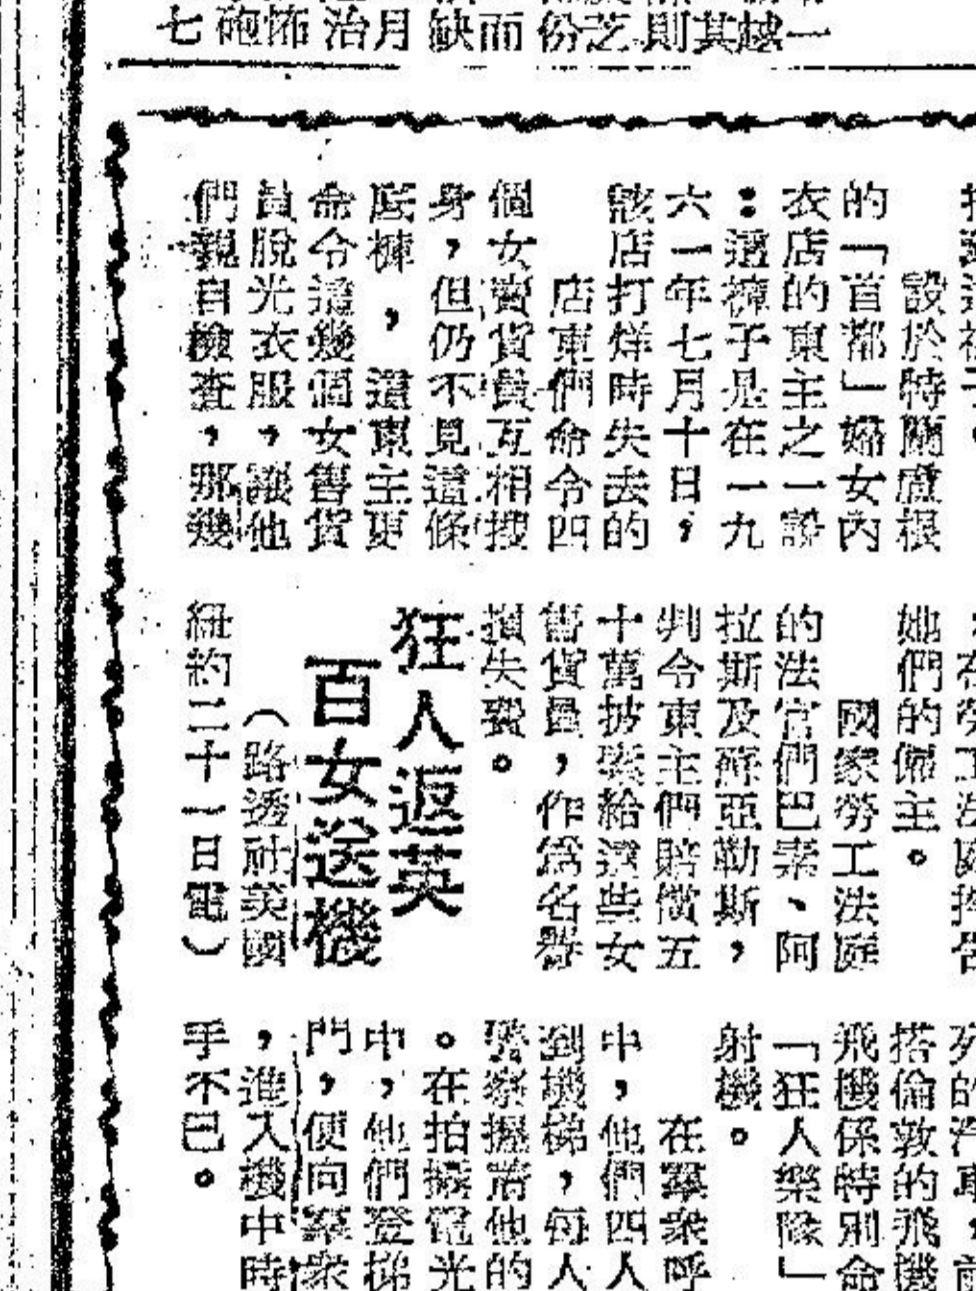 一
越
其
則
芝
份
而
缺
月
治
怖
砲
七
設於特關盧根
的「首都」婦女內
衣店的東主之一說
：這褲子是在一九
六一年七月十日，
該店打烊時失去的
店東們命令四
個女賣貨員互相搜
身，但仍不見這條
底褲，這東主更
命令這幾個女售貨
員脫光衣服，讓他
們親自檢查，那幾
她們的僱主。
國家勞工法庭
的法官們巴素、阿
拉斯及蘇亞勒斯，
判令東主們賠償五
十萬披索給這些女
售貨員，作爲名譽
損失費。
狂人返英
百女送機
（路透社英國
紐約二十一日電）
搭倫敦的飛機
飛機係特別命
「狂人樂隊」
射機。
在羣衆呼
中，他們四人
到機梯，每人
警察握着他的
。在拍攝電光
中，他們登梯
門，便向羣衆
，進入機中時
手不已。